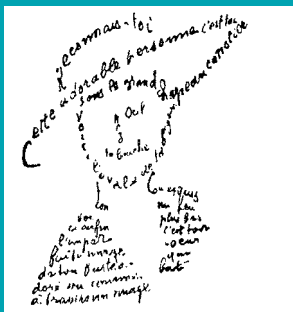 Reconnais-toi
Cette adorable personne c'est toi
sous le grand chapeau canotier
Oeil
la bouche
ovale de ta
Ton
Cou exquis
Voi
ci enfin
l'impar
faite image
de ton buste
vu comme
à travers un nuage
un peu
plus bas
c'est ton
coeur
qui
bat